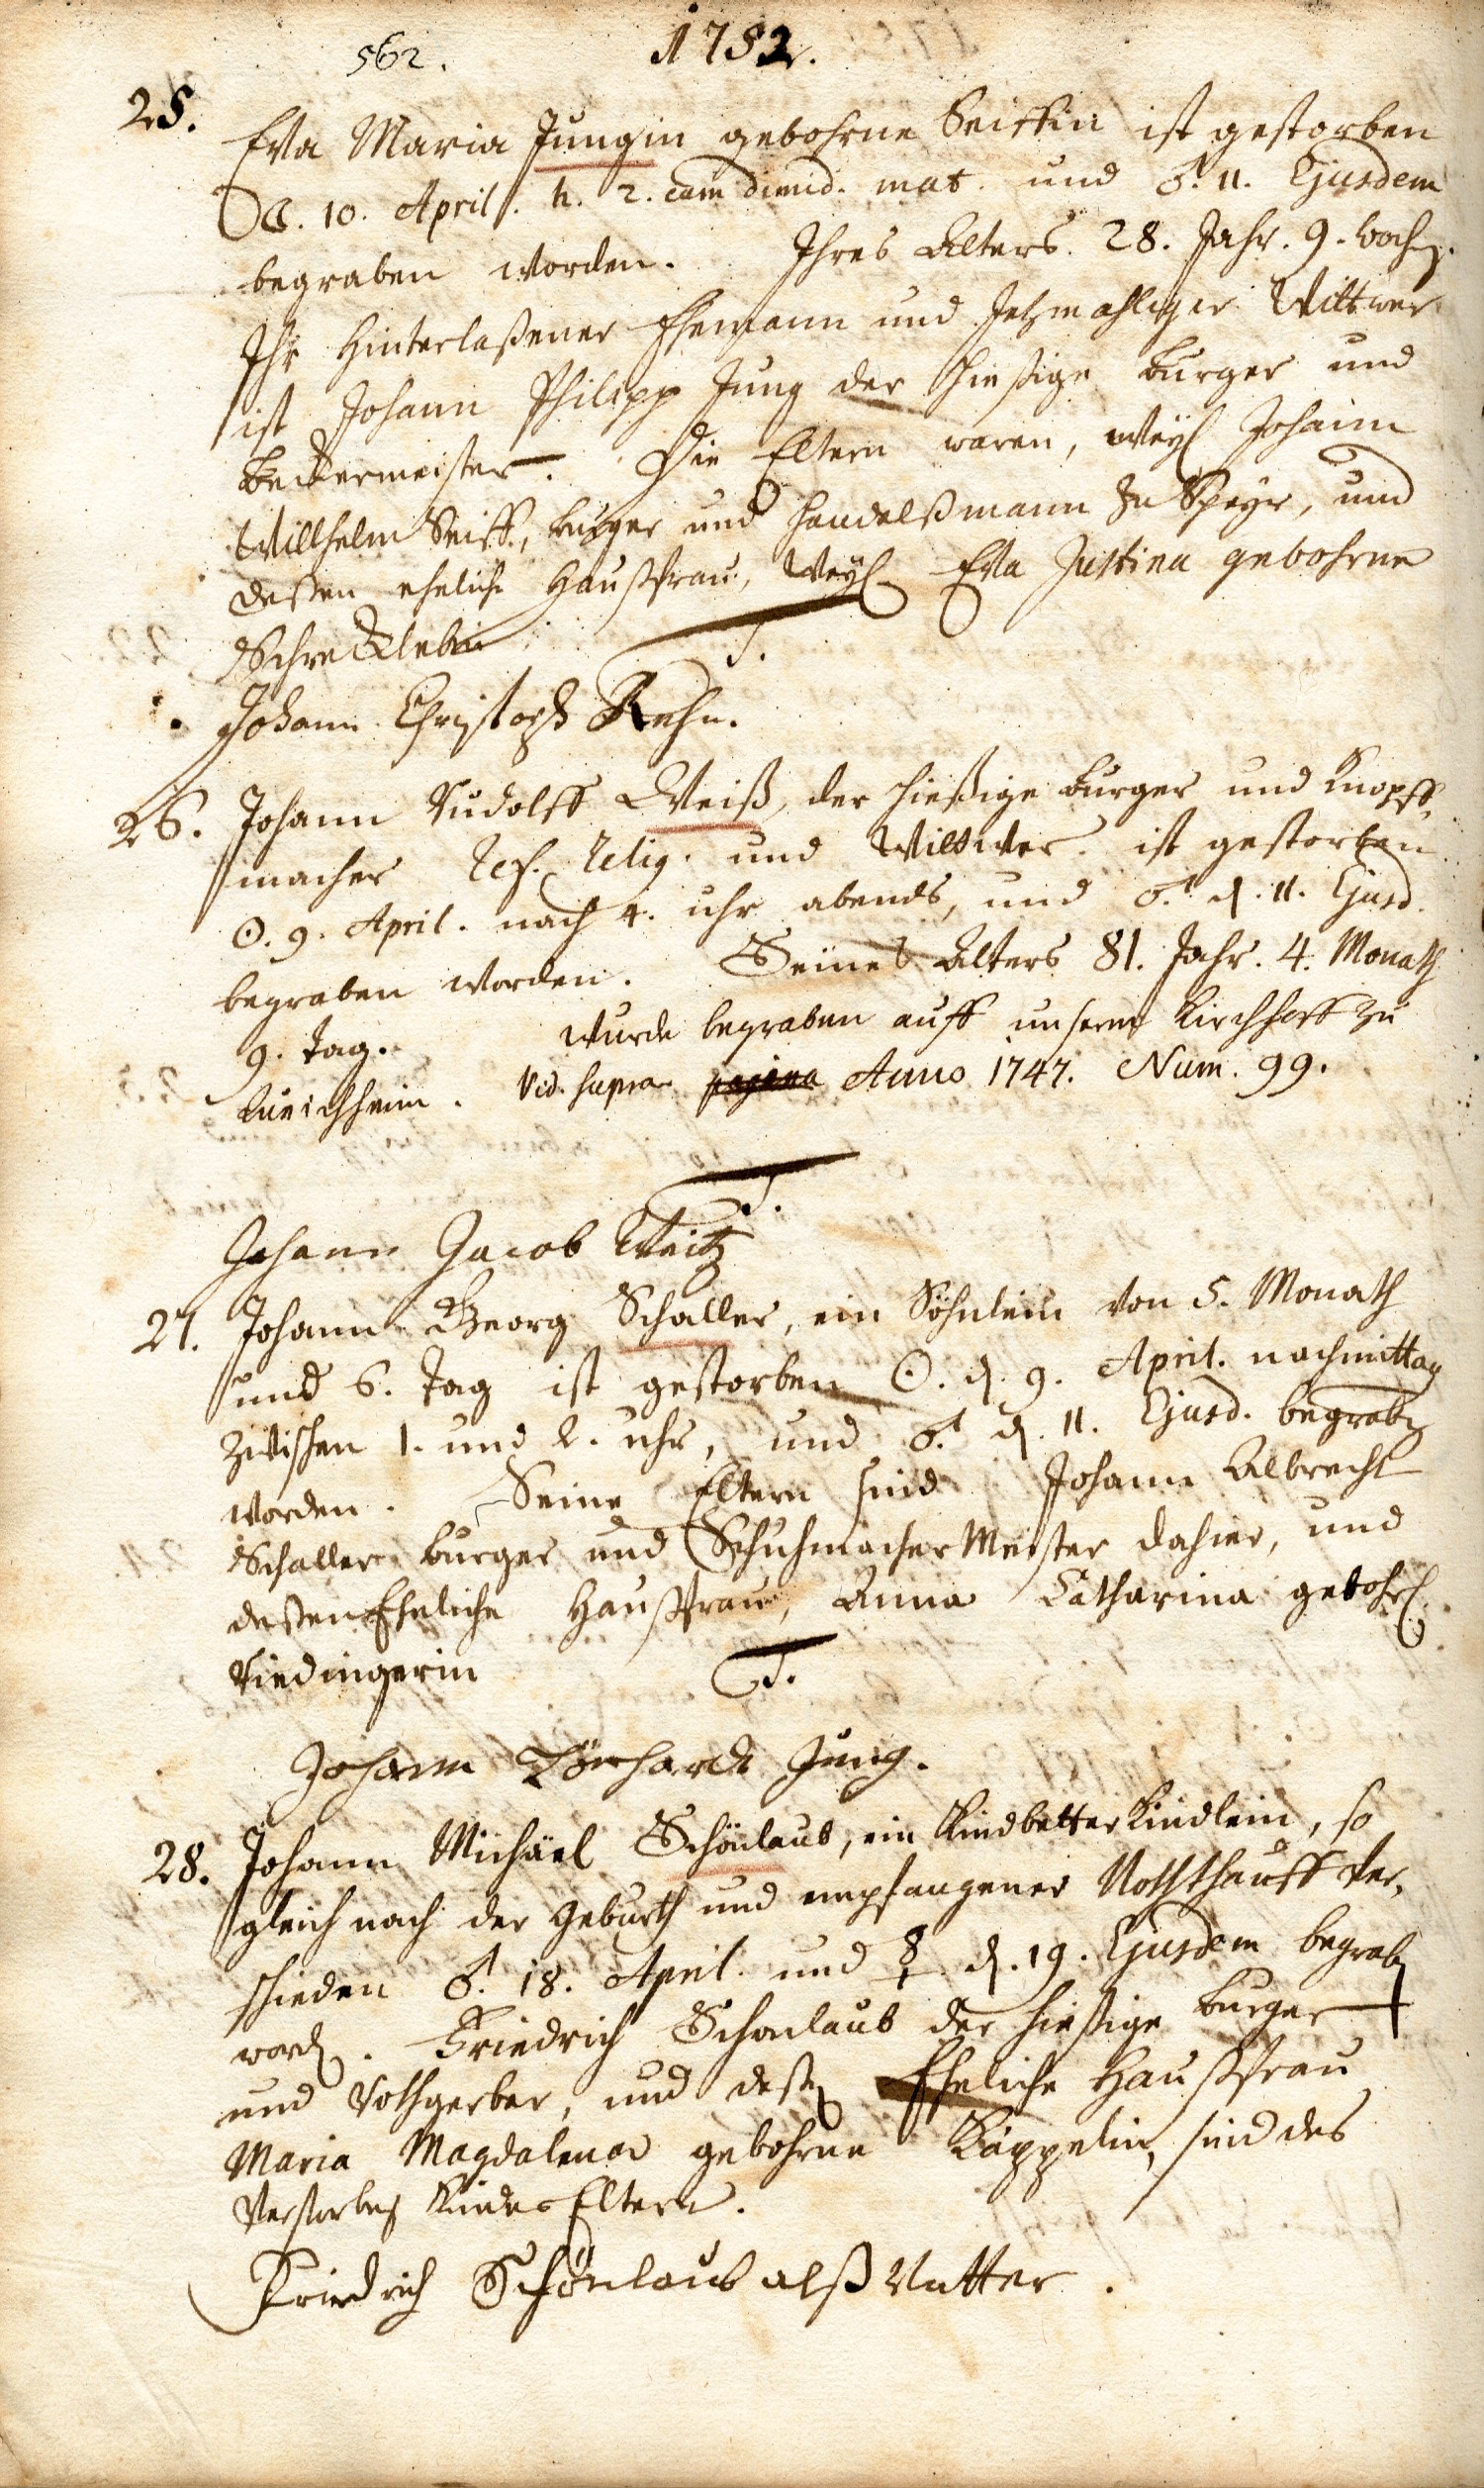 562.
1752.
25.
Eva Maria Jungin gebohrne Seiffin ist gestorben
☾. 10. April. h. 2. cum dimid. mat. und ♂. 11. Ejusdem
begraben worden. Ihres Alters 28. Jahr. 9. woch.
Ihr hinterlaßener Ehemann und Jetzmahliger Wittwer
ist Johann Philipp Jung der hießige burger und
beckermeister. Die Eltern waren, weyl Johann
Willhelm Seiff, burger und handelßmann Zu Speyr, und
deßen eheliche Haußfrau, Weyl Eva Justina gebohrne
T.
Johann Christoph Rehn.
26. Johann Rudolff Weiß, der hießige burger und Knopff-
macher Ref. Relig. und Wittwer ist gestorben
☉. 9. April. nach 4. uhr abends, und ♂. d. 11. Ejusd.
begraben worden. Seines Alters 81. Jahr. 4. Monath
9. Tag. wurde begraben auff unserm Kirchhoff zu
Queichheim. Vid. supra pagina Anno 1747. Num. 99.
T.
Johann Jacob Weitz
27. Johann Georg Schaller, ein Söhnlein von 5. Monath
und 6. Tag ist gestorben ☉. d. 9. April. nachmittag
zwischen 1. und 2. uhr, und ♂. d. 11. Ejusd. begraben
worden. Seine Eltern sind Johann Albrecht
Schaller burger und Schuhmacher Meister dahier, und
deßen Eheliche Haußfrau, Anna Catharina gebohr.
Riedingerin
T.
Johann Jung.
28. Johann Michäel Schönlaub, ein Kindbetter Kindlein, so
gleich nach der Geburth und empfangener Noththauff ver-
schieden ♂. 18. April. und ☿. d. 19. Ejusdem begraben
worden. Friedrich Schönlaub der hießige burger
und Rothgerber, und deßen Eheliche Haußfrau
Maria Magdalena gebohrne Käppelin, sind des
Verstorbenen Kindes Eltern.
Friedrich Schönlaub alß Vatter.